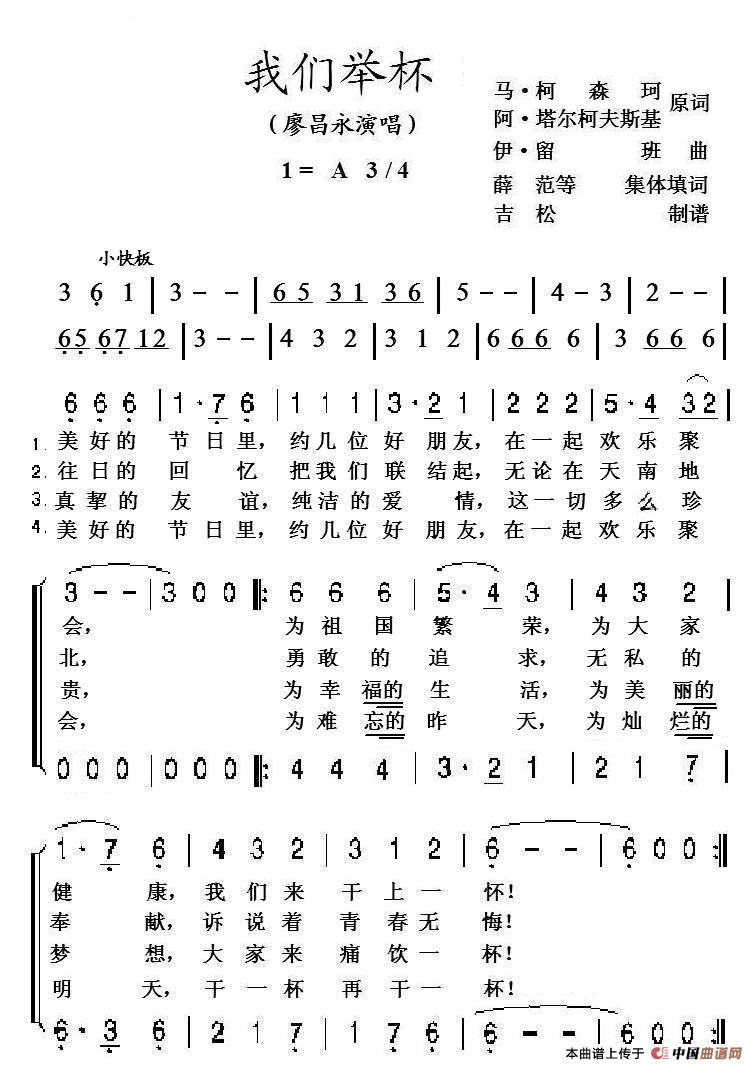 我们举杯
（廖昌永演唱）
1= A 3/4
马·柯森珂
阿·塔尔柯夫斯基 原词
伊·留班曲
薛范等 集体填词
吉松 制谱
小快板
3 6 1 | 3 - - | 65 31 36 | 5 - - | 4 - 3 | 2 - - |
65 67 12 | 3 - - | 4 3 2 | 3 1 2 | 6 66 6 | 3 66 6 |
6 6 6 | 1·7 6 | 1 1 1 | 3·2 1 | 2 2 2 | 5·4 32
1. 美好的节日里，约几位好朋友，在一起欢乐聚
2. 往日的回忆把我们联结起，无论在天南地
3. 真挚的友谊，纯洁的爱情，这一切多么珍
4. 美好的节日里，约几位好朋友，在一起欢乐聚
3 - - | 3 0 0 ‖: 6 6 6 | 5·4 3 | 4 3 2
会，为祖国繁荣，为大家
北，勇敢的追求，无私的
贵，为幸福的生活，为美丽的
会，为难忘的昨天，为灿烂的
0 0 0 | 0 0 0 ‖: 4 4 4 | 3·2 1 | 2 1 7
1·7 6 | 4 3 2 | 3 1 2 | 6 - - | 6 0 0 :‖
健康，我们来干上一怀！
奉献，诉说着青春无悔！
梦想，大家来痛饮一杯！
明天，干一杯再干一杯！
6·3 6 | 2 1 7 | 1 7 6 | 6 - - | 6 0 0 :‖
本曲谱上传于 中国曲谱网